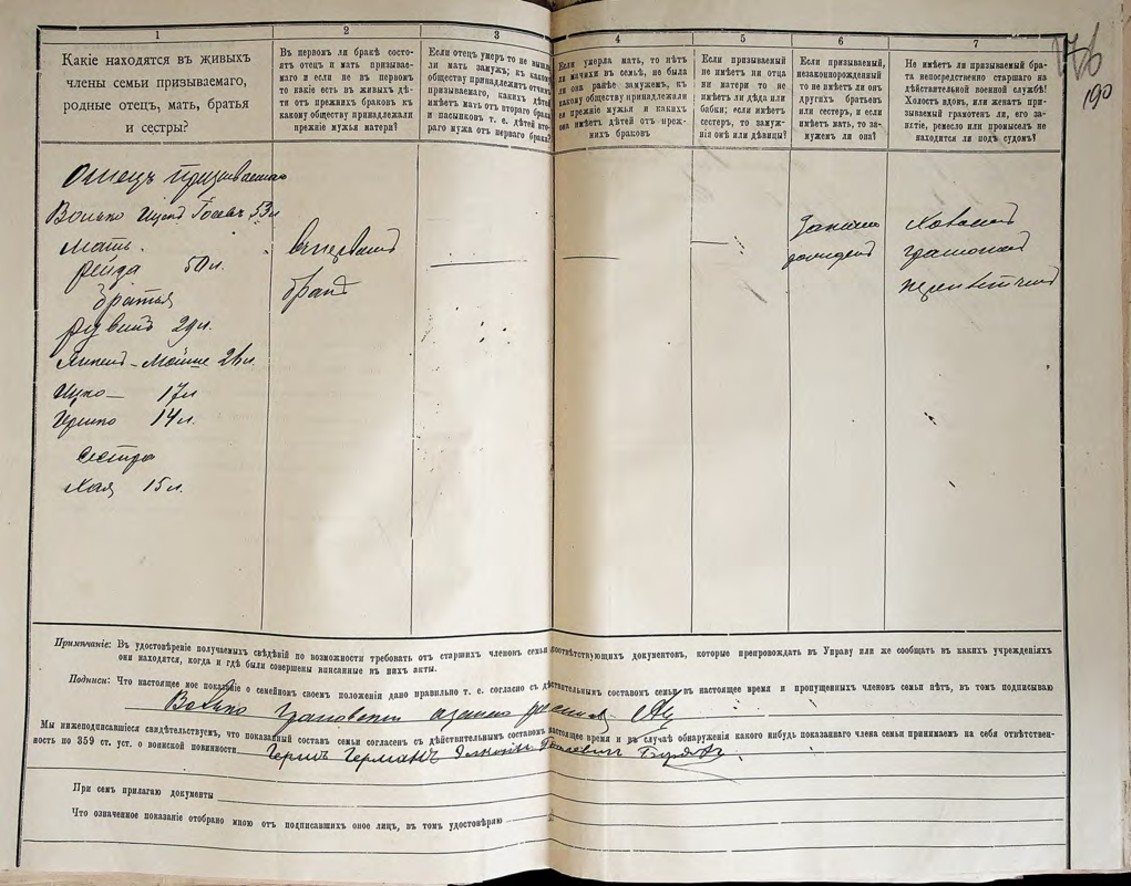 176
190
1
2
3
4
5
6
7
Какіе находятся въ живыхъ
члены семьи призываемаго,
родные отецъ, мать, братья
и сестры?
Въ первомъ ли бракѣ состо-
ятъ отецъ и мать призывае-
маго и если не въ первомъ
то какіе есть въ живыхъ дѣ-
ти отъ прежнихъ браковъ къ
какому обществу принадлежали
прежніе мужья матери?
Если отецъ умеръ то не вышла
ли мать замужъ; къ какому
обществу принадлежитъ отчимъ
призываемаго, какихъ дѣтей
имѣетъ мать отъ второго брака
и пасынковъ т. е. дѣтей вто-
раго мужа отъ перваго брака?
Если умерла мать, то нѣтъ
ли мачихи въ семьѣ, не была
ли она ранѣе замужемъ, къ
какому обществу принадлежали
ея прежніе мужья и какихъ
она имѣетъ дѣтей отъ преж-
нихъ браковъ
Если призываемый
не имѣетъ ни отца
ни матери то не
имѣетъ ли дѣда или
бабки; если имѣетъ
сестеръ, то замуж-
нія онѣ или дѣвицы?
Если призываемый,
незаконнорожденный
то не имѣетъ ли онъ
другихъ братьевъ
или сестеръ, и если
имѣетъ мать, то за-
мужемъ ли она?
Не имѣетъ ли призываемый бра-
та непосредственно старшаго на
дѣйствительной военной службѣ!
Холостъ вдовъ, или женатъ при-
зываемый грамотенъ ли, его за-
нятіе, ремесло или промыселъ не
находится ли подъ судомъ?
Отецъ призываемаго
Волько Ицков Госевъ 53 л
Мать
Рейда 50 л.
Братья
Рувинъ 29 л.
Мойше
Ицко — 17 л
Гершко 14 л.
Сестра
Хая 15 л.
въ первый
бракъ
Законно
рожден
Холост
грамотн
Примѣчаніе: Въ удостовѣреніе получаемыхъ свѣдѣній по возможности требовать отъ старшихъ членовъ семьи соотвѣтствующихъ документовъ, которые препровождать въ Управу или же сообщать въ какихъ учрежденіяхъ
они находятся, когда и гдѣ были совершены вписанные въ нихъ акты.
Подписи: Что настоящее мое показаніе о семейномъ своемъ положеніи дано правильно т. е. согласно съ дѣйствительнымъ составомъ семьи въ настоящее время и пропущенныхъ членовъ семьи нѣтъ, въ томъ подписываю
Волько Грановский
Мы нижеподписавшіеся свидѣтельствуемъ, что показанный составъ семьи согласенъ съ дѣйствительнымъ составомъ настоящее время и въ случаѣ обнаруженія какого нибудь показаннаго члена семьи принимаемъ на себя отвѣтствен-
ность по 359 ст. уст. о воинской повинности Герш Германъ
При семъ прилагаю документы
Что означенное показаніе отобрано мною отъ подписавшихъ оное лицъ, въ томъ удостовѣряю